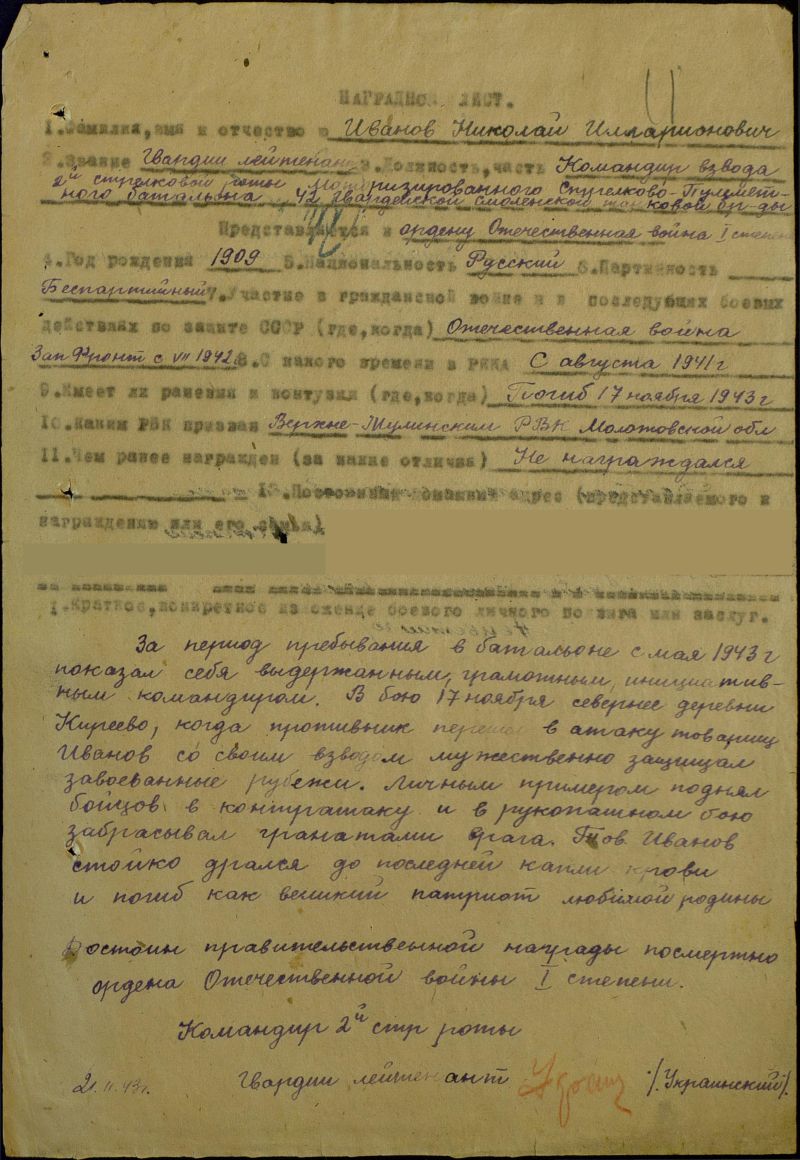 НАГРАДНОЙ ЛИСТ.
1.Фамилия,имя и отчество Иванов Николай Илларионович
2.Звание Гвардии лейтенант 3.Должность,часть Командир взвода
2й стрелковой роты моторизированного Стрелково-Пулемет-
ного батальона 42 гвардейской смоленской танковой бр-ды
Представляется к ордену Отечественная война I степени
4.Год рождения 1909 5.Национальность Русский 6.Партийность
Беспартийный 7.Участие в гражданской войне и в последующих боевых
действиях по защите СССР (где,когда) Отечественная война
Зап Фронт с VII 1942 8.С какого времени в РККА С августа 1941 г
9.Имеет ли ранения и контузии (где,когда) Погиб 17 ноября 1943 г
10.Каким РВК призван Верхне-Мулинским РВК Молотовской обл
11.Чем ранее награжден (за какие отличия) Не награждался
12.Постоянный домашний адрес (представляемого к
награждению или его семьи)
1.Краткое,конкретное изложение боевого личного подвига или заслуг.
За период пребывания в батальоне с мая 1943 г
показал себя выдержанным, грамотным, инициатив-
ным командиром. В бою 17 ноября севернее деревни
Киреево, когда противник перешел в атаку товарищ
Иванов со своим взводом мужественно защищал
завоеванные рубежи. Личным примером поднял
бойцов в контратаку и в рукопашном бою
забрасывал гранатами врага. Тов. Иванов
стойко дрался до последней капли крови
и погиб как великий патриот любимой родины
Достоин правительственной награды посмертно
ордена Отечественной войны I степени.
Командир 2й стр роты
21.11.43г. Гвардии лейтенант /.Украинский/.